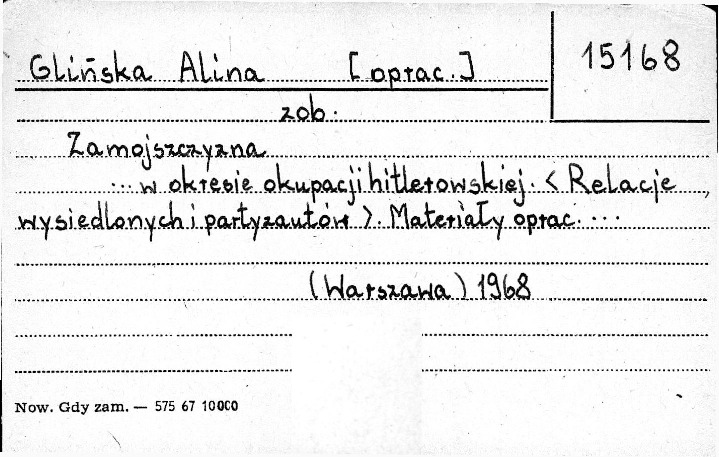 Glińska Alina [oprac.]
15168
zob.
Zamojszczyzna
... w okresie okupacji hitlerowskiej. < Relacje
wysiedlonych i partyzautów >. Materiały oprac. ...
(Warszawa) 1968
Now. Gdy zam. — 575 67 10000